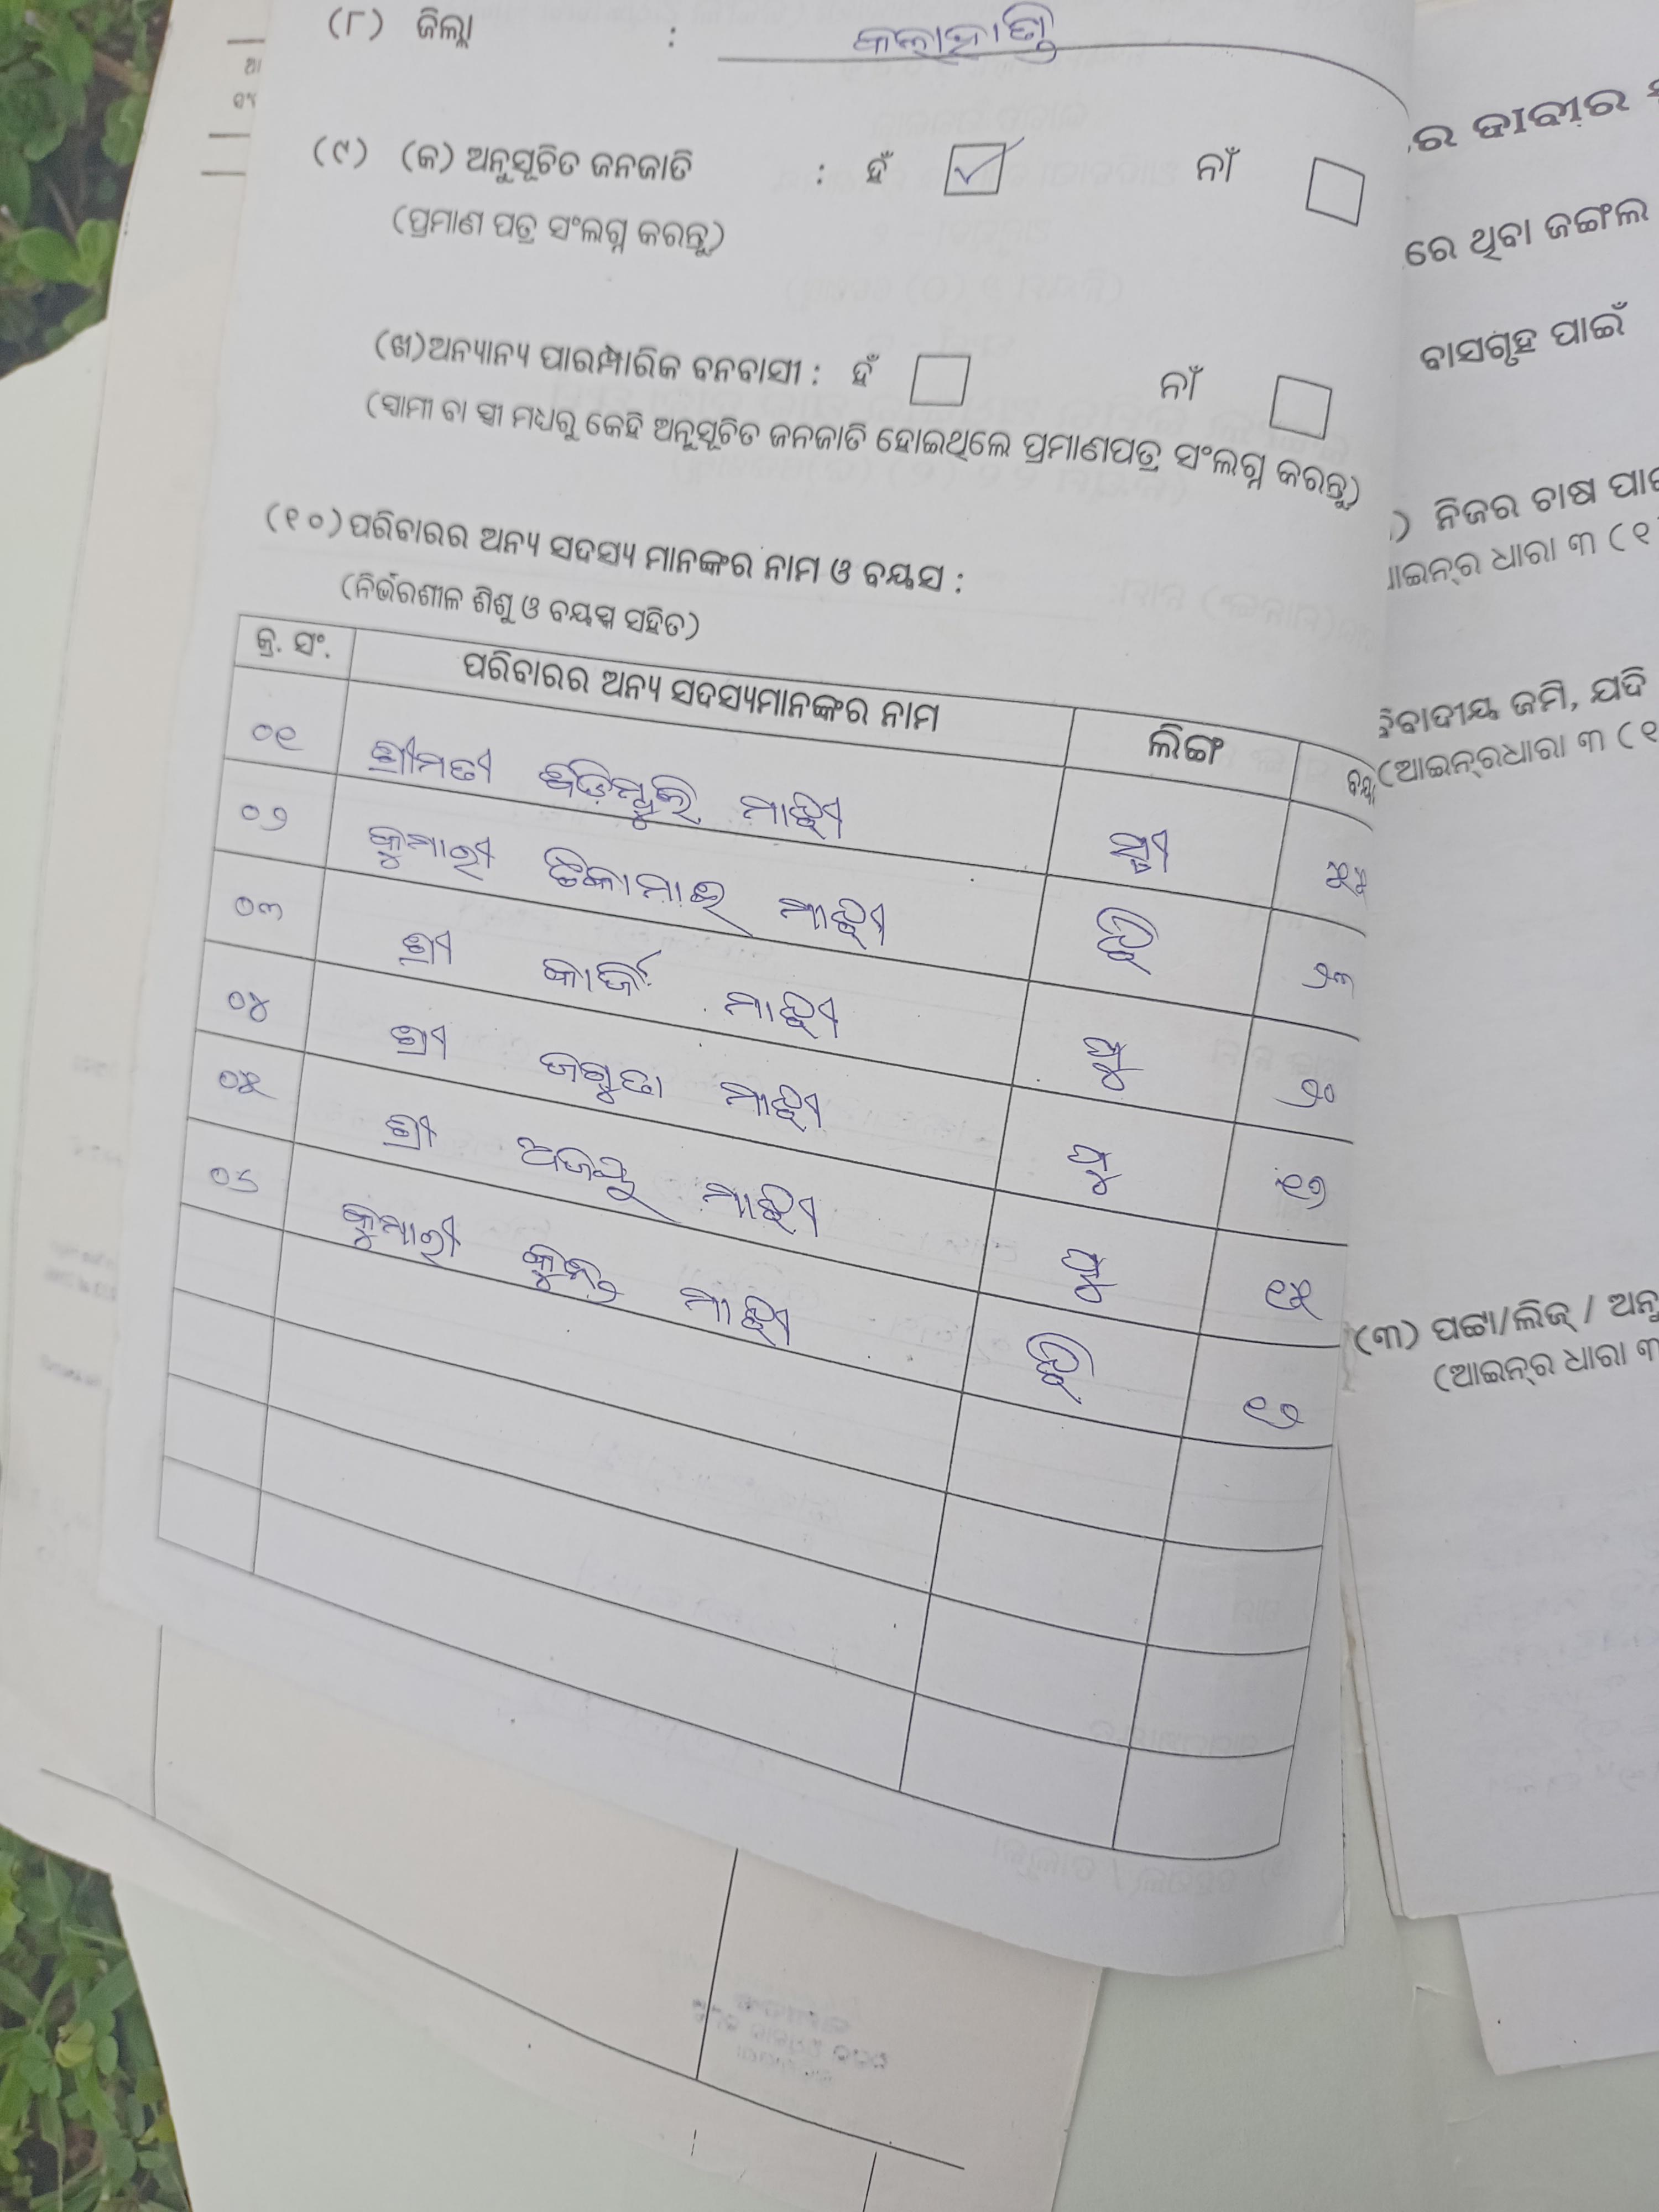 (୮) ଜିଲ୍ଲା : କଳାହାଣ୍ଡି
(୯) (କ) ଅନୁସୂଚିତ ଜନଜାତି : ହଁ ନାଁ
(ପ୍ରମାଣ ପତ୍ର ସଂଲଗ୍ନ କରନ୍ତୁ)
(ଖ) ଅନ୍ୟାନ୍ୟ ପାରମ୍ପାରିକ ବନବାସୀ : ହଁ ନାଁ
(ସ୍ୱାମୀ ବା ସ୍ତ୍ରୀ ମଧ୍ୟରୁ କେହି ଅନୁସୂଚିତ ଜନଜାତି ହୋଇଥିଲେ ପ୍ରମାଣପତ୍ର ସଂଲଗ୍ନ କରନ୍ତୁ)
(୧୦) ପରିବାରର ଅନ୍ୟ ସଦସ୍ୟ ମାନଙ୍କର ନାମ ଓ ବୟସ :
(ନିର୍ଭରଶୀଳ ଶିଶୁ ଓ ବୟସ୍କ ସହିତ)
କ୍ର. ସଂ. ପରିବାରର ଅନ୍ୟ ସଦସ୍ୟମାନଙ୍କର ନାମ ଲିଙ୍ଗ
୦୧ ଶ୍ରୀମତୀ ମାଝୀ ସ୍ତ୍ରୀ ୫୫
୦୨ କୁମାରୀ ଟିକାମାଇ ମାଝୀ ଝି ୨୩
୦୩ ଶ୍ରୀ କାର୍ଜି ମାଝୀ ପୁ ୨୦
୦୪ ଶ୍ରୀ ଜଗୁତା ମାଝୀ ପୁ ୧୭
୦୫ ଶ୍ରୀ ମାଝୀ ପୁ ୧୫
୦୬ କୁମାରୀ ମାଝୀ ଝି ୧୨
ର ଦାବୀର
ରେ ଥିବା ଜଙ୍ଗଲ
ବାସଗୃହ ପାଇଁ
) ନିଜର ଚାଷ
ଆଇନ୍‌ର ଧାରା ୩ (୧
ବିବାଦୀୟ ଜମି, ଯଦି
(ଆଇନ୍‌ରଧାରା ୩ (୧
(୩) ପଟ୍ଟା/ଲିଜ୍ /
(ଆଇନ୍‌ର ଧାରା ୩